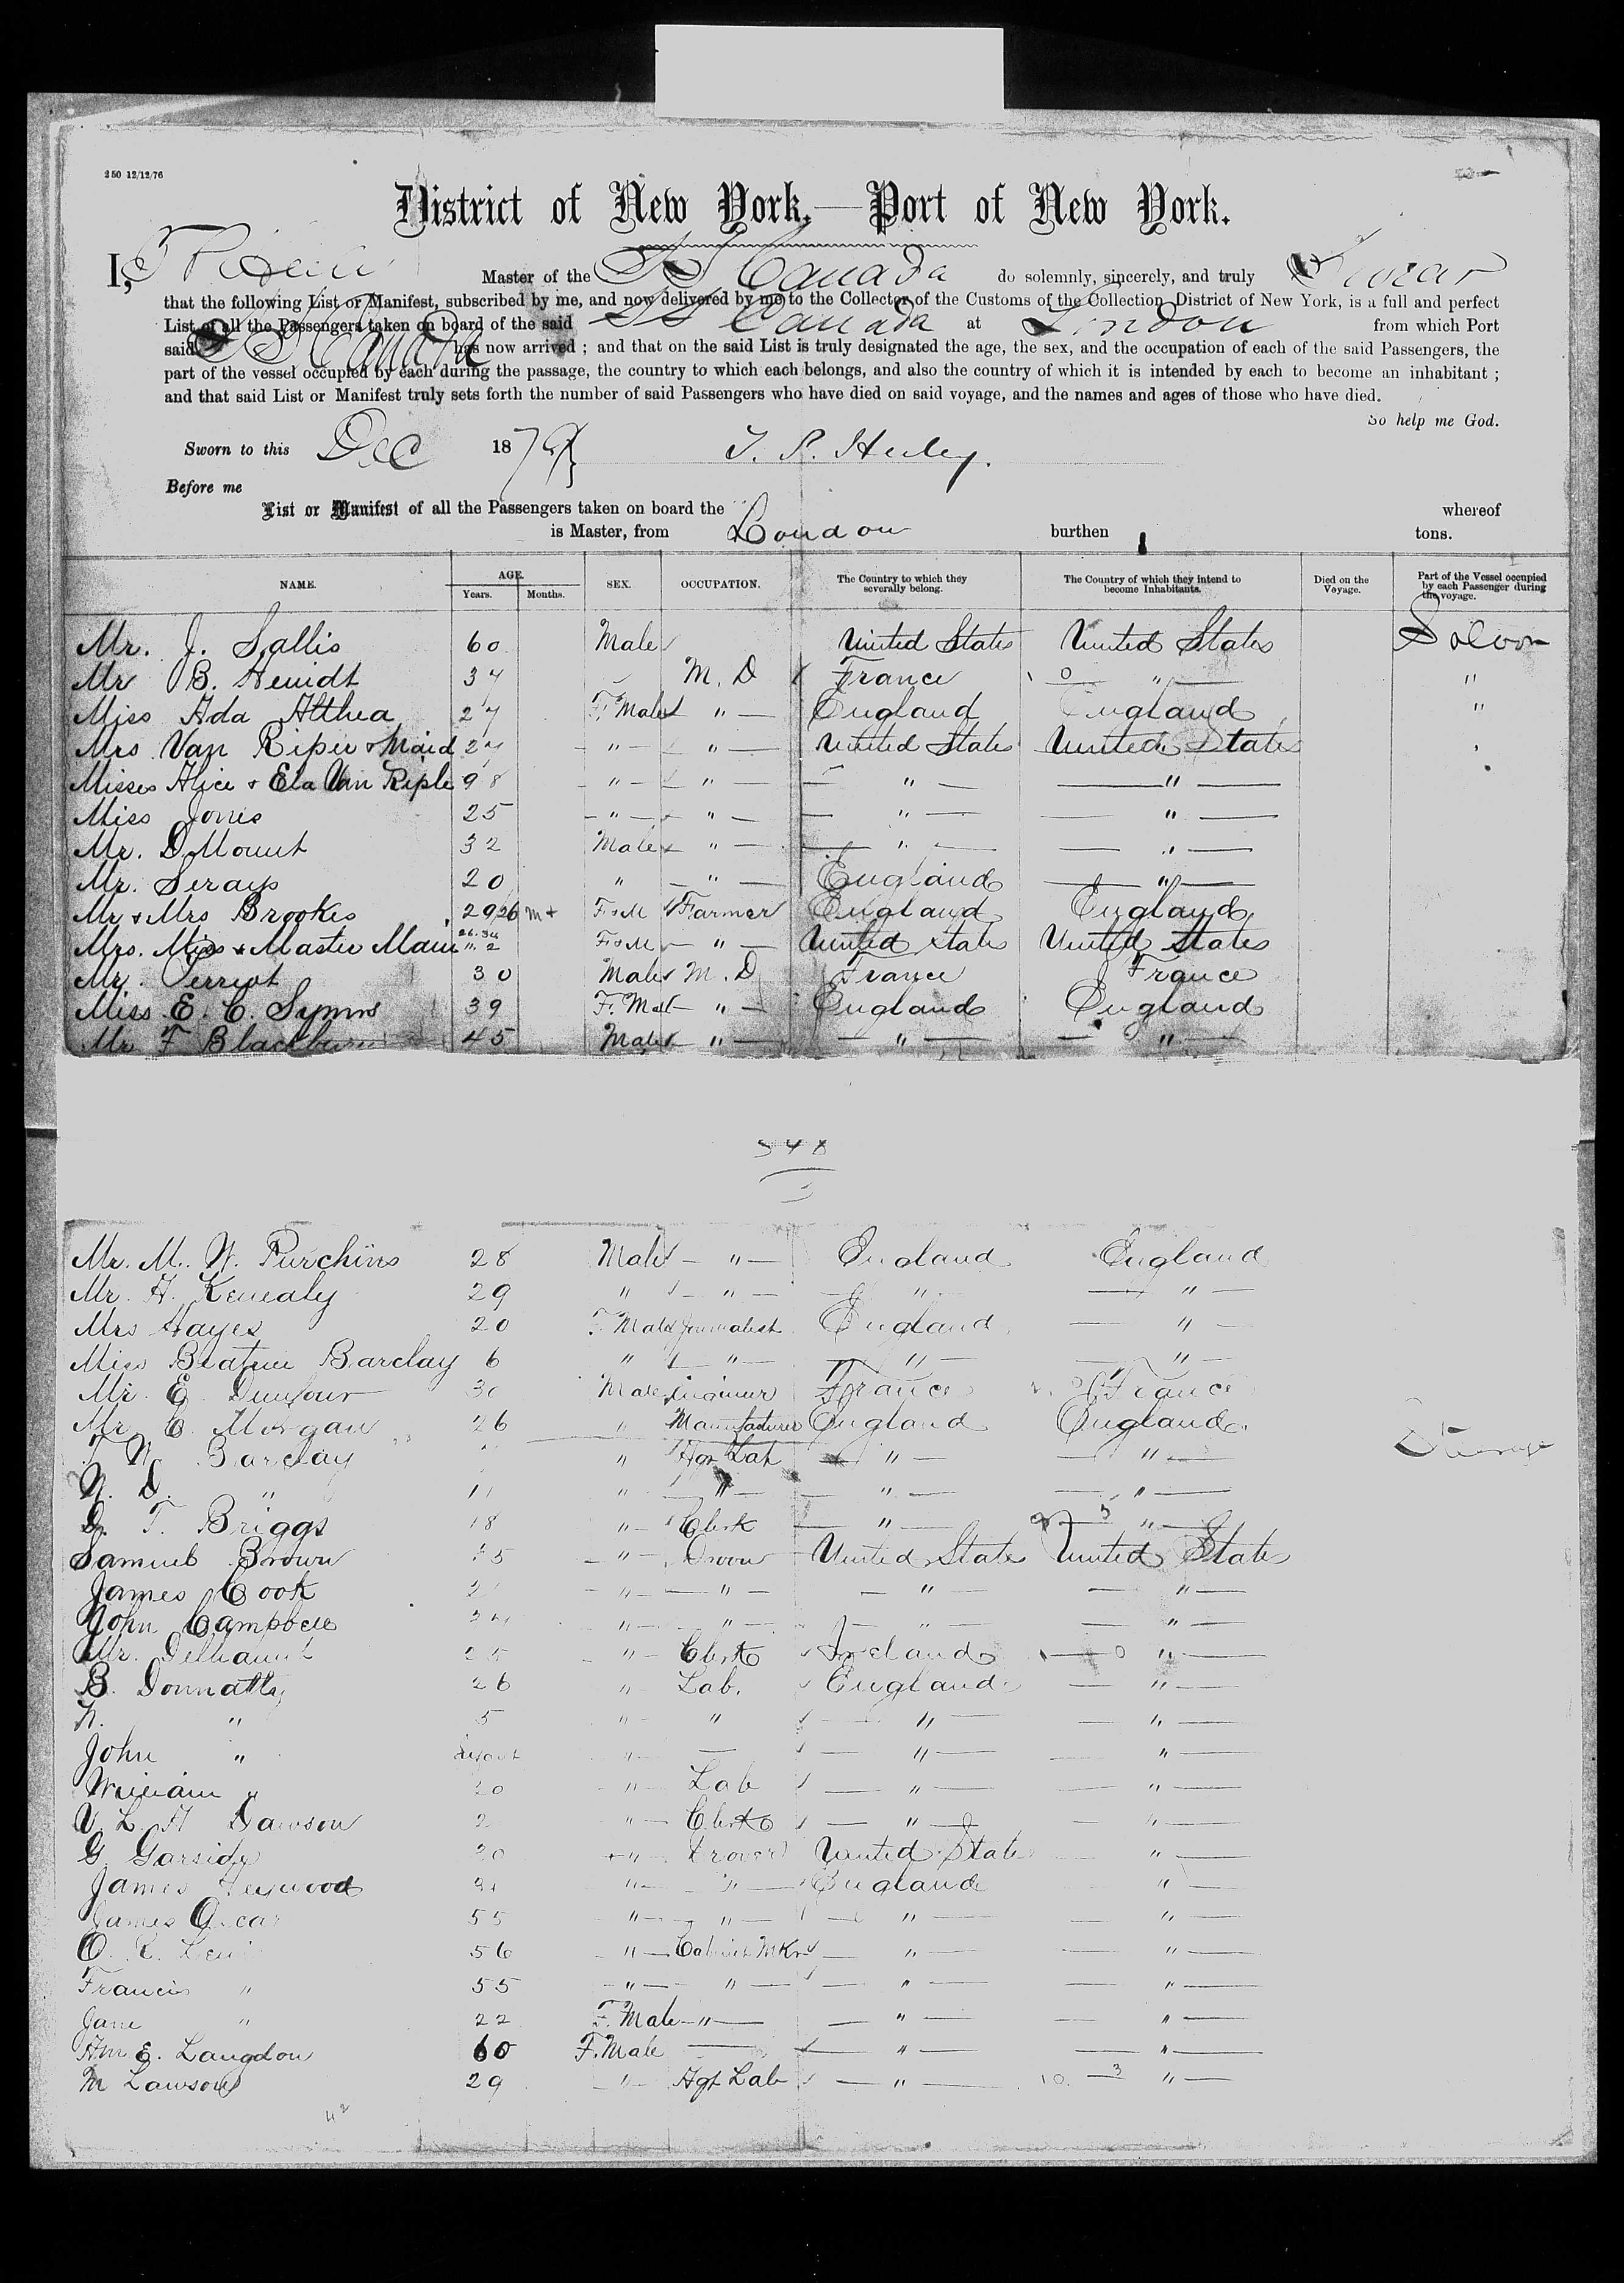 250 12/12/76
District of New York,—Port of New York.
I, Master of the SS Canada do solemnly, sincerely, and truly Swear
that the following List or Manifest, subscribed by me, and now delivered by me to the Collector of the Customs of the Collection District of New York, is a full and perfect
List of all the Passengers taken on board of the said SS Canada at London from which Port
said SS Canada has now arrived ; and that on the said List is truly designated the age, the sex, and the occupation of each of the said Passengers, the
part of the vessel occupied by each during the passage, the country to which each belongs, and also the country of which it is intended by each to become an inhabitant ;
and that said List or Manifest truly sets forth the number of said Passengers who have died on said voyage, and the names and ages of those who have died.
So help me God.
Sworn to this Dec 1879
Before me
List or Manifest of all the Passengers taken on board the whereof
is Master, from London burthen tons.
NAME. AGE. Years. Months. SEX. OCCUPATION. The Country to which they severally belong. The Country of which they intend to become Inhabitants. Died on the Voyage. Part of the Vessel occupied by each Passenger during the voyage.
Mr. J. Sallis 60 Male United States United States Saloon
Mr B. 34 M. D France " "
Miss Ada Althea 27 F. Male " England England "
Mrs Van Riper & Maid 27 " " United States United States
Misses Alice & Ela Van Riple 9 8 " " " "
Miss Jones 25 " " " "
Mr. D Mount 32 Male " " "
Mr. 20 " " England "
Mr & Mrs Brookes 29 26 F & M Farmer England England
Mrs. Miss & Master Main F & M " United States United States
Mr. Perriot 30 Male M. D France France
Miss E. C. Symns 39 F. Mal " England England
Mr F Blackburn 45 Male " " "
548
3
Mr. M. W. Purchins 28 Male " England England
Mr. H. Kenealy 29 " " " "
Mrs Hayes 20 F. Male Journalist England "
Miss Beatrice Barclay 6 " " " "
Mr. E. Dunfour 30 Male Engineer France France
Mr C. Morgan 26 " Manufacturer England England
W Barclay " Agr Lab " " Steerage
N. D. " 11 " " " "
T. Briggs 18 " Clerk " "
Samuel Brown " United States United States
James Cook " " " "
John Campbell 34 " " " "
Mr. 25 " Clerk Ireland "
B. Donnatty 26 " Lab. England "
N. " 5 " " " "
John " Infant " " "
William " 20 " Lab " "
V. L. H Dawson 2 " Clerk " "
G Garside 20 " Drover United State "
James Heywood " " England "
James 55 " " " "
O. R. 56 " Cabinet Mkr " "
Francis " 55 " " " "
Jane " 22 F. Male " " "
E. Langdon 60 F. Male " "
M Lawson 29 " Agr Lab " "